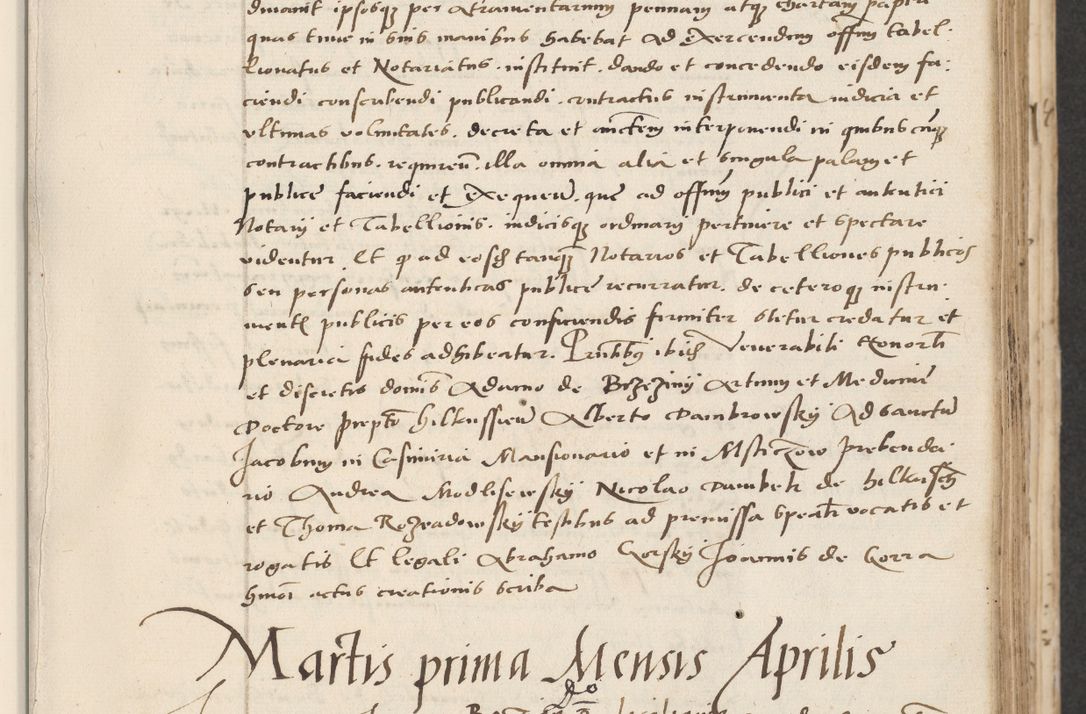 ipsosq per atramentarium pennam atq chartam papiri
quas tunc in suis manibus habebat ad exercendum offm tabel-
lionatus et Notariatus. instituit. dando et concedendo eisdem fa-
ciendi conscribendi publicandi. contractus instrumenta iudicia et
ultimas voluntates. decreta et auctem interponendi in quibuscunq
contractibus. requireñ. illa omnia alia et singula palam et
publice faciendi et exequeñ. que ad offium publici et autentici
Notarij et Tabellionis. iudicisq ordinarij pertinere et spectare
videntur. Et q ad eosd tanq Notarios et Tabelliones publicos
seu personas autenticas publice recurratur. de ceteroq instru-
ment publicis per eos conficiendis firmiter stetur credatur et
plenaria fides adhibeatur. Pntibus ibid Venerabili
et discretis domis Adamo de Brzeziny Artium et Medicine
Doctore prepto hilkussieñ Alberto Dambrowsky Ad sanctu
Jacobum in Casimiria Mansionario et in Msticzow prebenda-
rio Andrea Modlisewsky Nicolao Dambek de hilkusch
et Thoma Rozeadowsky testibus ad premissa vocatis et
rogatis Et legali Abrahamo Gorsky Joannis de Gorra
hmoi actus creationis scriba
Martis prima Mensis Aprilis